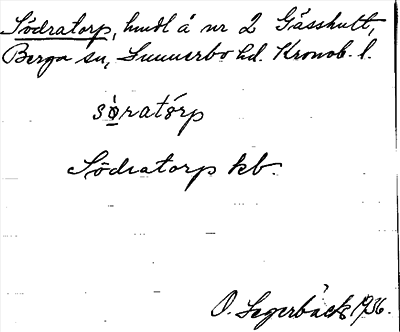 Södratorp, hmdl å nr 2 Gåsshult,
Berga sn, Sunnerbo hd. Kronob. l.
sòratórp
Södratorp kb.
O. Segerbäck 1936.